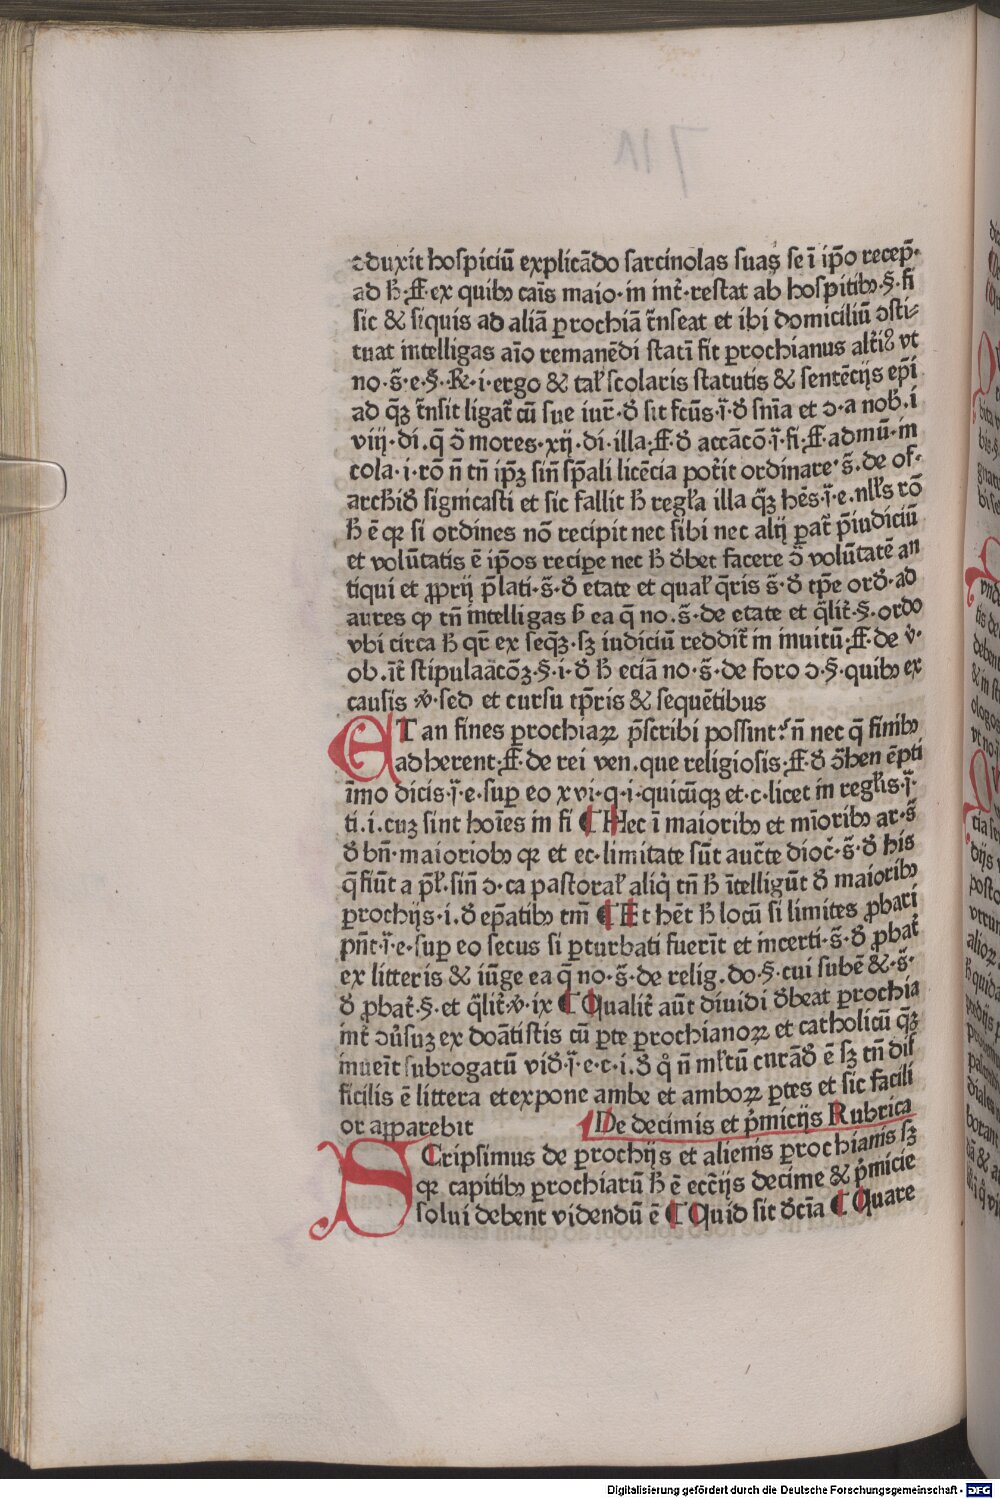 ↄduxit hospiciū explicādo sarcinolas suas se ī ip̄o recep̄·
ad h̄·ff ex quibꝯ cāis maio·in int̄·restat ab hospitibꝯ·§·fi
sic & siquis ad aliā ꝑochiā t̄nseat et ibi domiciliū ↄsti⸗
tuat intelligas aīo remanēdi statī fit ꝑochianus alt̄iꝰ vt
no·s̄·e·§·R·i·ergo & tal̄ scolaris statutis & sentēcijs ep̄i
ad q̄ꝫ t̄nsit ligat̄ cū sue iur̄·ð sit fcūs·ī·ð sn̄ia et ↄ·a nob̄·i
viij·di·q̄ ↄ̄ mores·xij·di·illa·ff ð accācō·ī·fi·ff admū·in
cola·i·rō n̄ tn̄ ip̄ꝫ sin̄ sp̄ali licēcia pot̄it ordinare·s̄·de of·
archið signicasti et sic fallit h̄ regl̄a illa q̄ꝫ hēs·ī·e·nll̄s rō
h̄ ē qꝛ si ordines nō recipit nec sibi nec alij ꝑat̄ p̄iudiciū
et volūtatis ē ip̄os recipe nec h̄ ðbet facere ↄ̄ volūtatē an
tiqui et ꝓprij p̄lati·s̄·ð etate et qual̄ q̄ris s̄·ð tp̄e orð·ad
aures ꝙ tn̄ intelligas h̄ ea q̄ no·s̄·de etate et q̄lit̄·§·ordo
vbi circa h̄ qr̄ ex seq̄ꝫ·sꝫ iudiciū reddit̄ in inuitū·ff·de v̄·
ob·īt̄ stipulaācōꝫ·§·i·ð h̄ eciā no·s̄·de foro ↄ·§·quibꝯ ex
causis v̄·sed et cursu tp̄ris & sequētibus
ET an fines ꝑochiaꝝ p̄scribi possint·r̄ n̄ nec q̄ finibꝯ
adherent·ff·de rei ven·que religiosis·ff·ð ↄ̄hen ēpti
īmo dicis·ī·e·suꝑ eo xvi·q·i·quicūqꝫ et·c·licet in regl̄is·ī·
ti·i·cuꝫ sint hoīes in fi ¶ Hec ī maioribꝯ et mīoribꝯ ar·s̄
ð bn̄·maioriobꝯ qꝛ et ec·limitate sūt auct̄e dioc̄·s̄·ð his
q̄ fiūt a p̄l̄·sin̄ ↄ·ca pastoral̄ aliq̇ tn̄ h̄ ītelligūt ð maioribꝯ
ꝑochijs·i·ð ep̄atibꝯ tm̄ ¶ Et hēt h̄ locū si limites ꝓbari
pn̄t·ī·e·suꝑ eo secus si ꝑturbati fuerīt et incerti·s̄·ð ꝓbat̄
ex litteris & iūge ea q̄ no·s̄·de relig·do·§·cui subē &·s̄·
ð ꝓbat̄·§·et q̄lit̄·v̄·ix ¶ Qualit̄ aūt diuidi ðbeat ꝑochia
int̄ ↄūsuꝫ ex doātistis cū ꝑte ꝑochianoꝝ et catholicū q̄ꝫ
inueīt subrogatū við·ī·e·c·i·ð q̊ n̄ ml̄tū curāð ē sꝫ tn̄ dif
ficilis ē littera et expone ambe et amboꝝ ꝑtes et sic facili
or aꝑparebit De decimis et p̄micijs Rubrica
SCripsimus de ꝑochijs et alienis ꝑochianis sꝫ
qꝛ capitibꝯ ꝑochiarū h̄ ē ecc̄ijs decime & p̄micie
solui debent videndū ē ¶ Quid sit ðcīa ¶ Quare
Digitalisierung gefördert durch die Deutsche Forschungsgemeinschaft - DFG